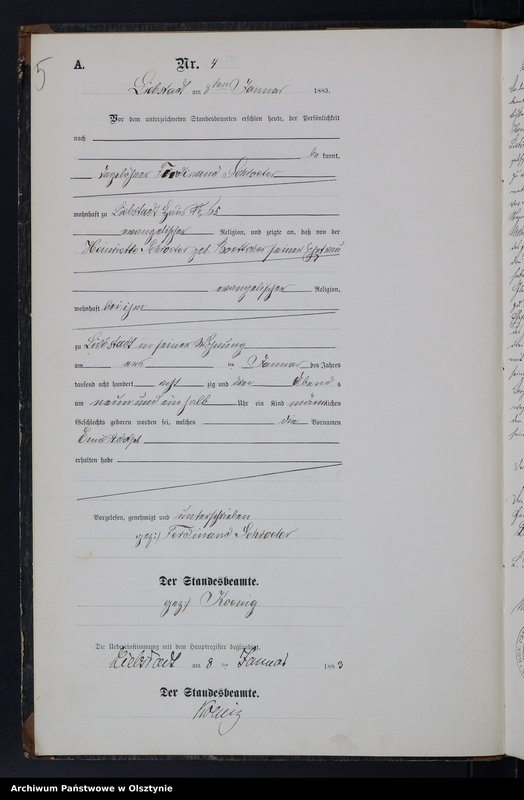 5
A.
Nr. 4
Liebstadt am 8ten Januar 1883.
Vor dem unterzeichneten Standesbeamten erschien heute, der Persönlichkeit
nach
be kannt,
Tagelöhner Ferdinand Schroeter
wohnhaft zu Liebstadt Haus Nr. 65
evangelischer Religion, und zeigte an, daß von der
Henriette Schroeter geb. Boettcher seiner Ehefrau
evangelischer Religion,
wohnhaft bei ihm
zu Liebstadt in seiner Wohnung
am ten Januar des Jahres
tausend acht hundert acht zig und drei Abend s
um neun und ein halb Uhr ein Kind männlichen
Geschlechts geboren worden sei, welches die Vornamen
Emil
erhalten habe
Vorgelesen, genehmigt und unterschrieben
gez:) Ferdinand Schroeter
Der Standesbeamte.
gez:) Koenig
Die Uebereinstimmung mit dem Hauptregister beglaubigt.
Liebstadt am 8 ten Januar 1883
Der Standesbeamte.
Koenig
Archiwum Państwowe w Olsztynie